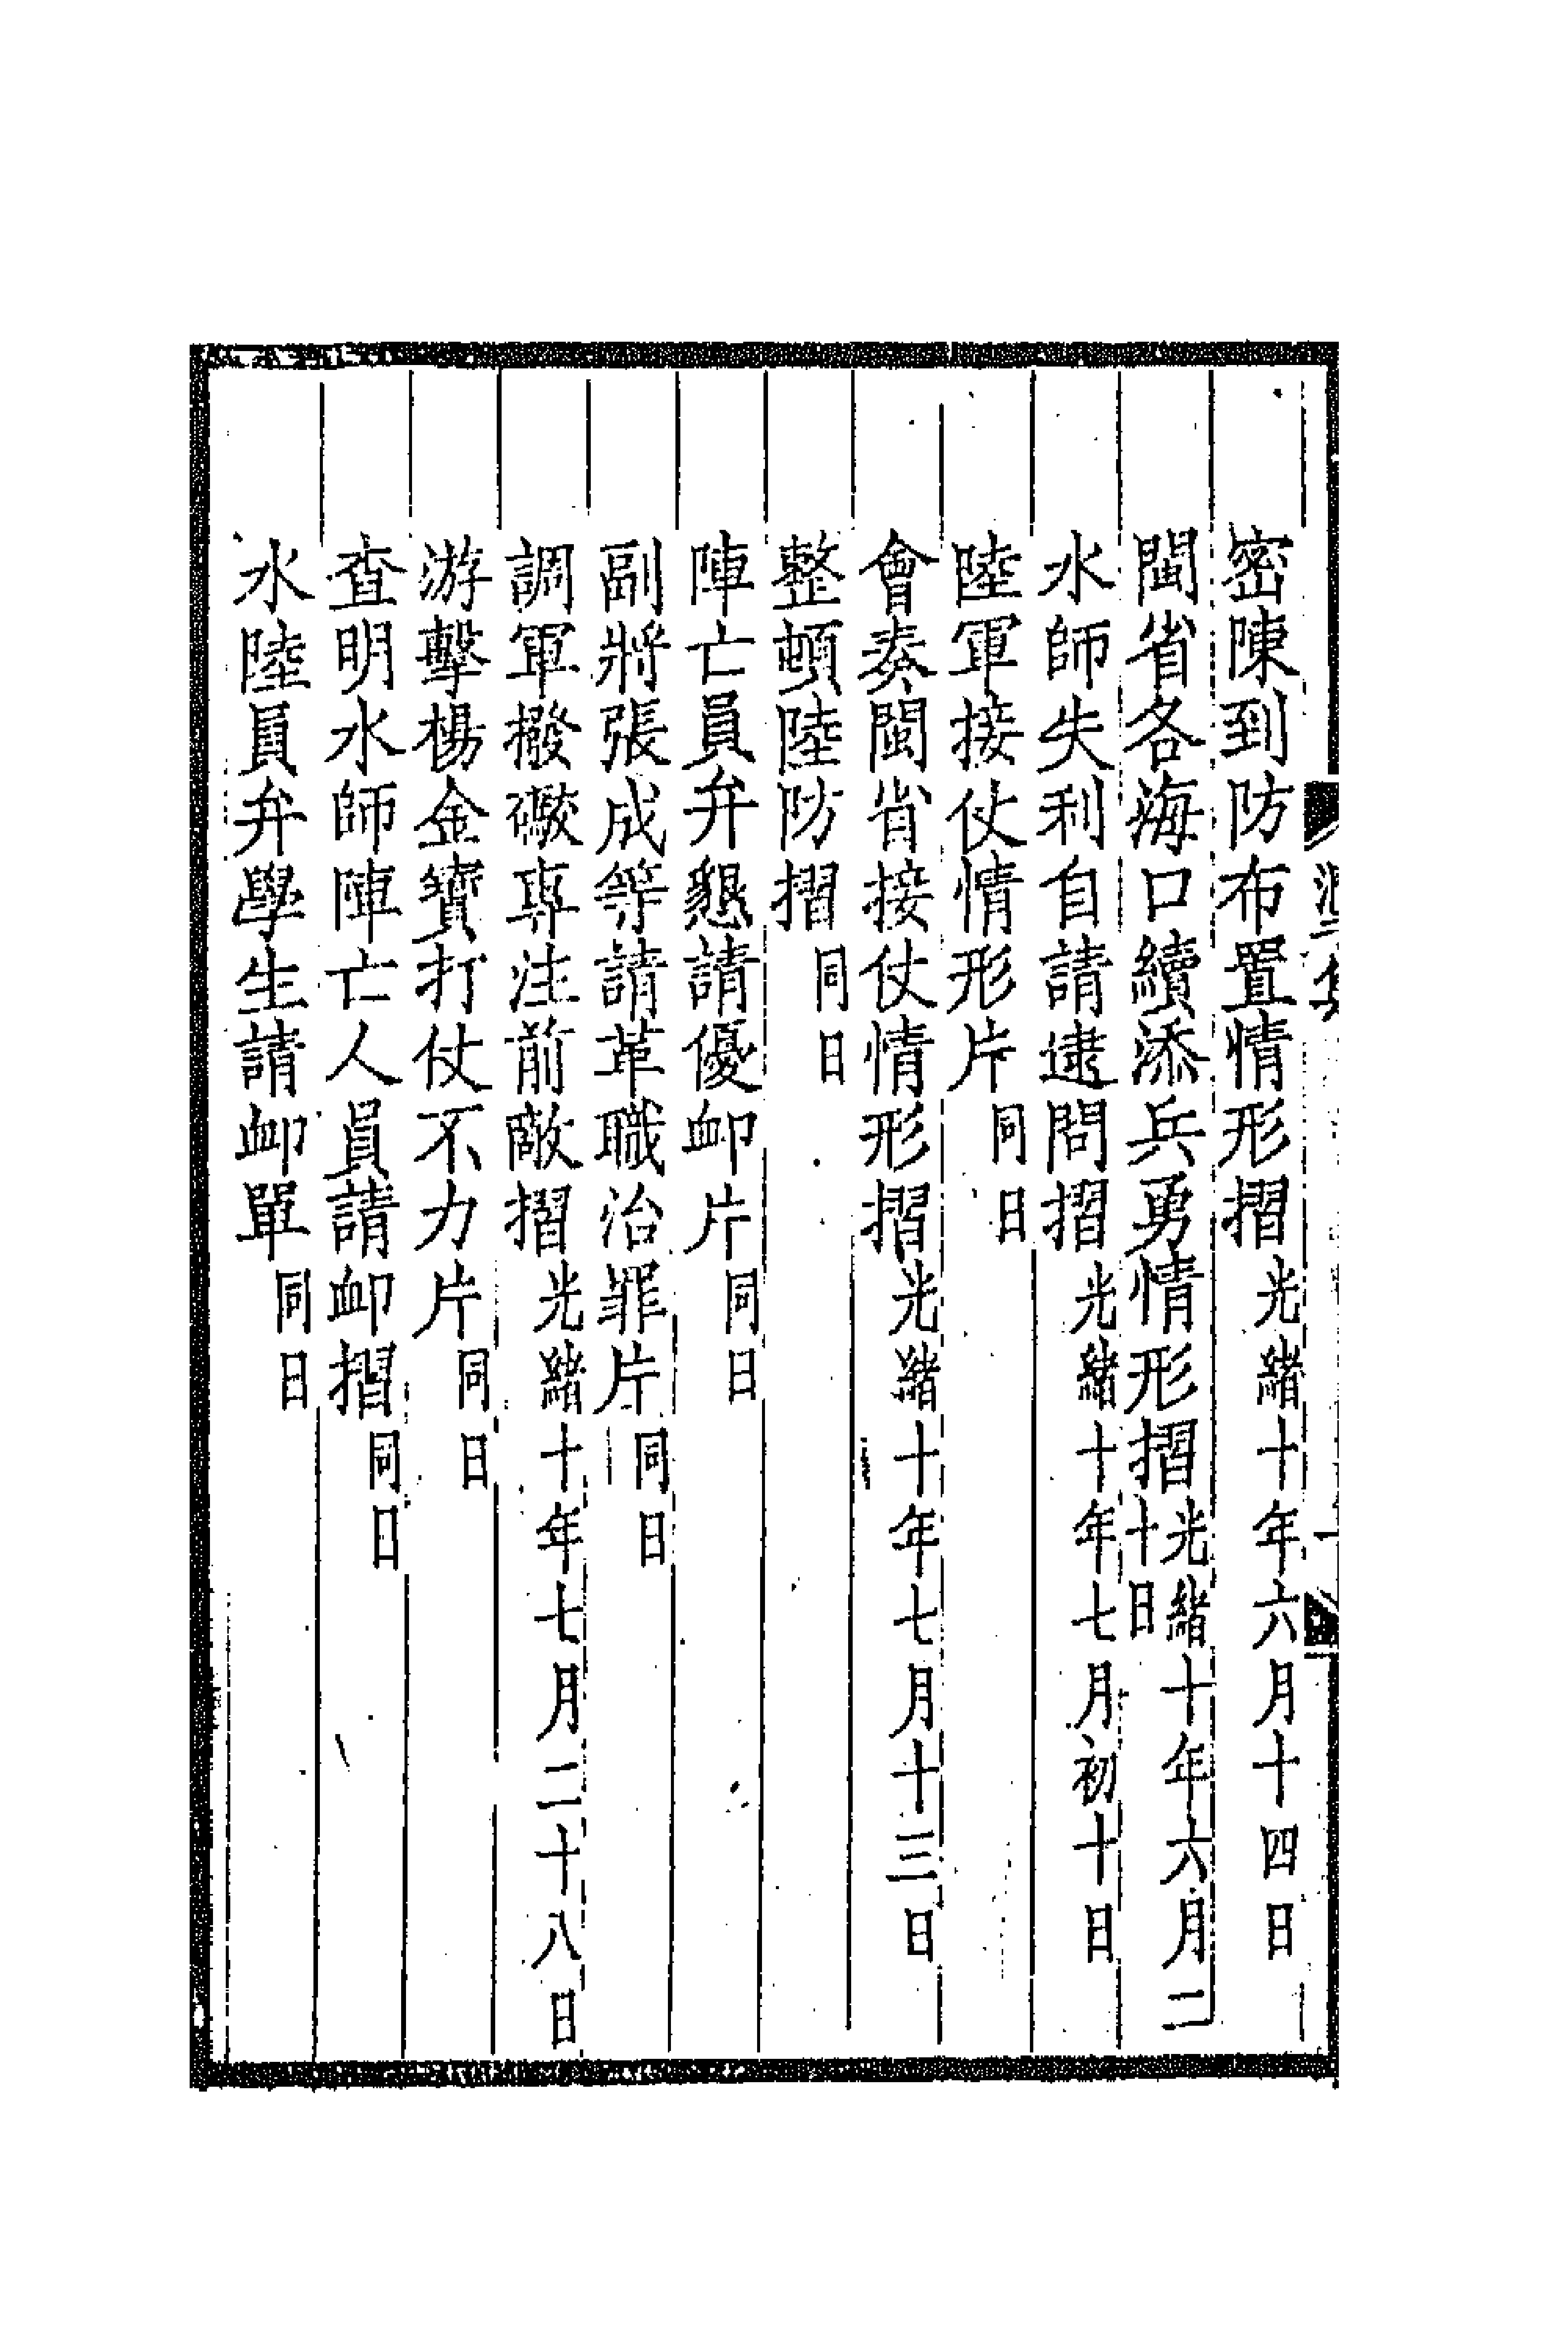 密陳到防布置情形摺光緒十年六月十四日
閩省各海口續添兵勇情形摺光緒十年六月二十日
水師失利自請逮問摺光緒十年七月初十日
陸軍接仗情形片同日
會奏閩省接仗情形摺光緒十年七月十三日
整頓陸防摺同日
陣亡員弁懇請優卹片同日
副將張成等請革職治罪片同日
調軍撥礮專注前敵摺光緒十年七月二十八日
游擊楊金寶打仗不力片同日
查明水師陣亡人員請卹摺同日
水陸員弁學生請卹單同日